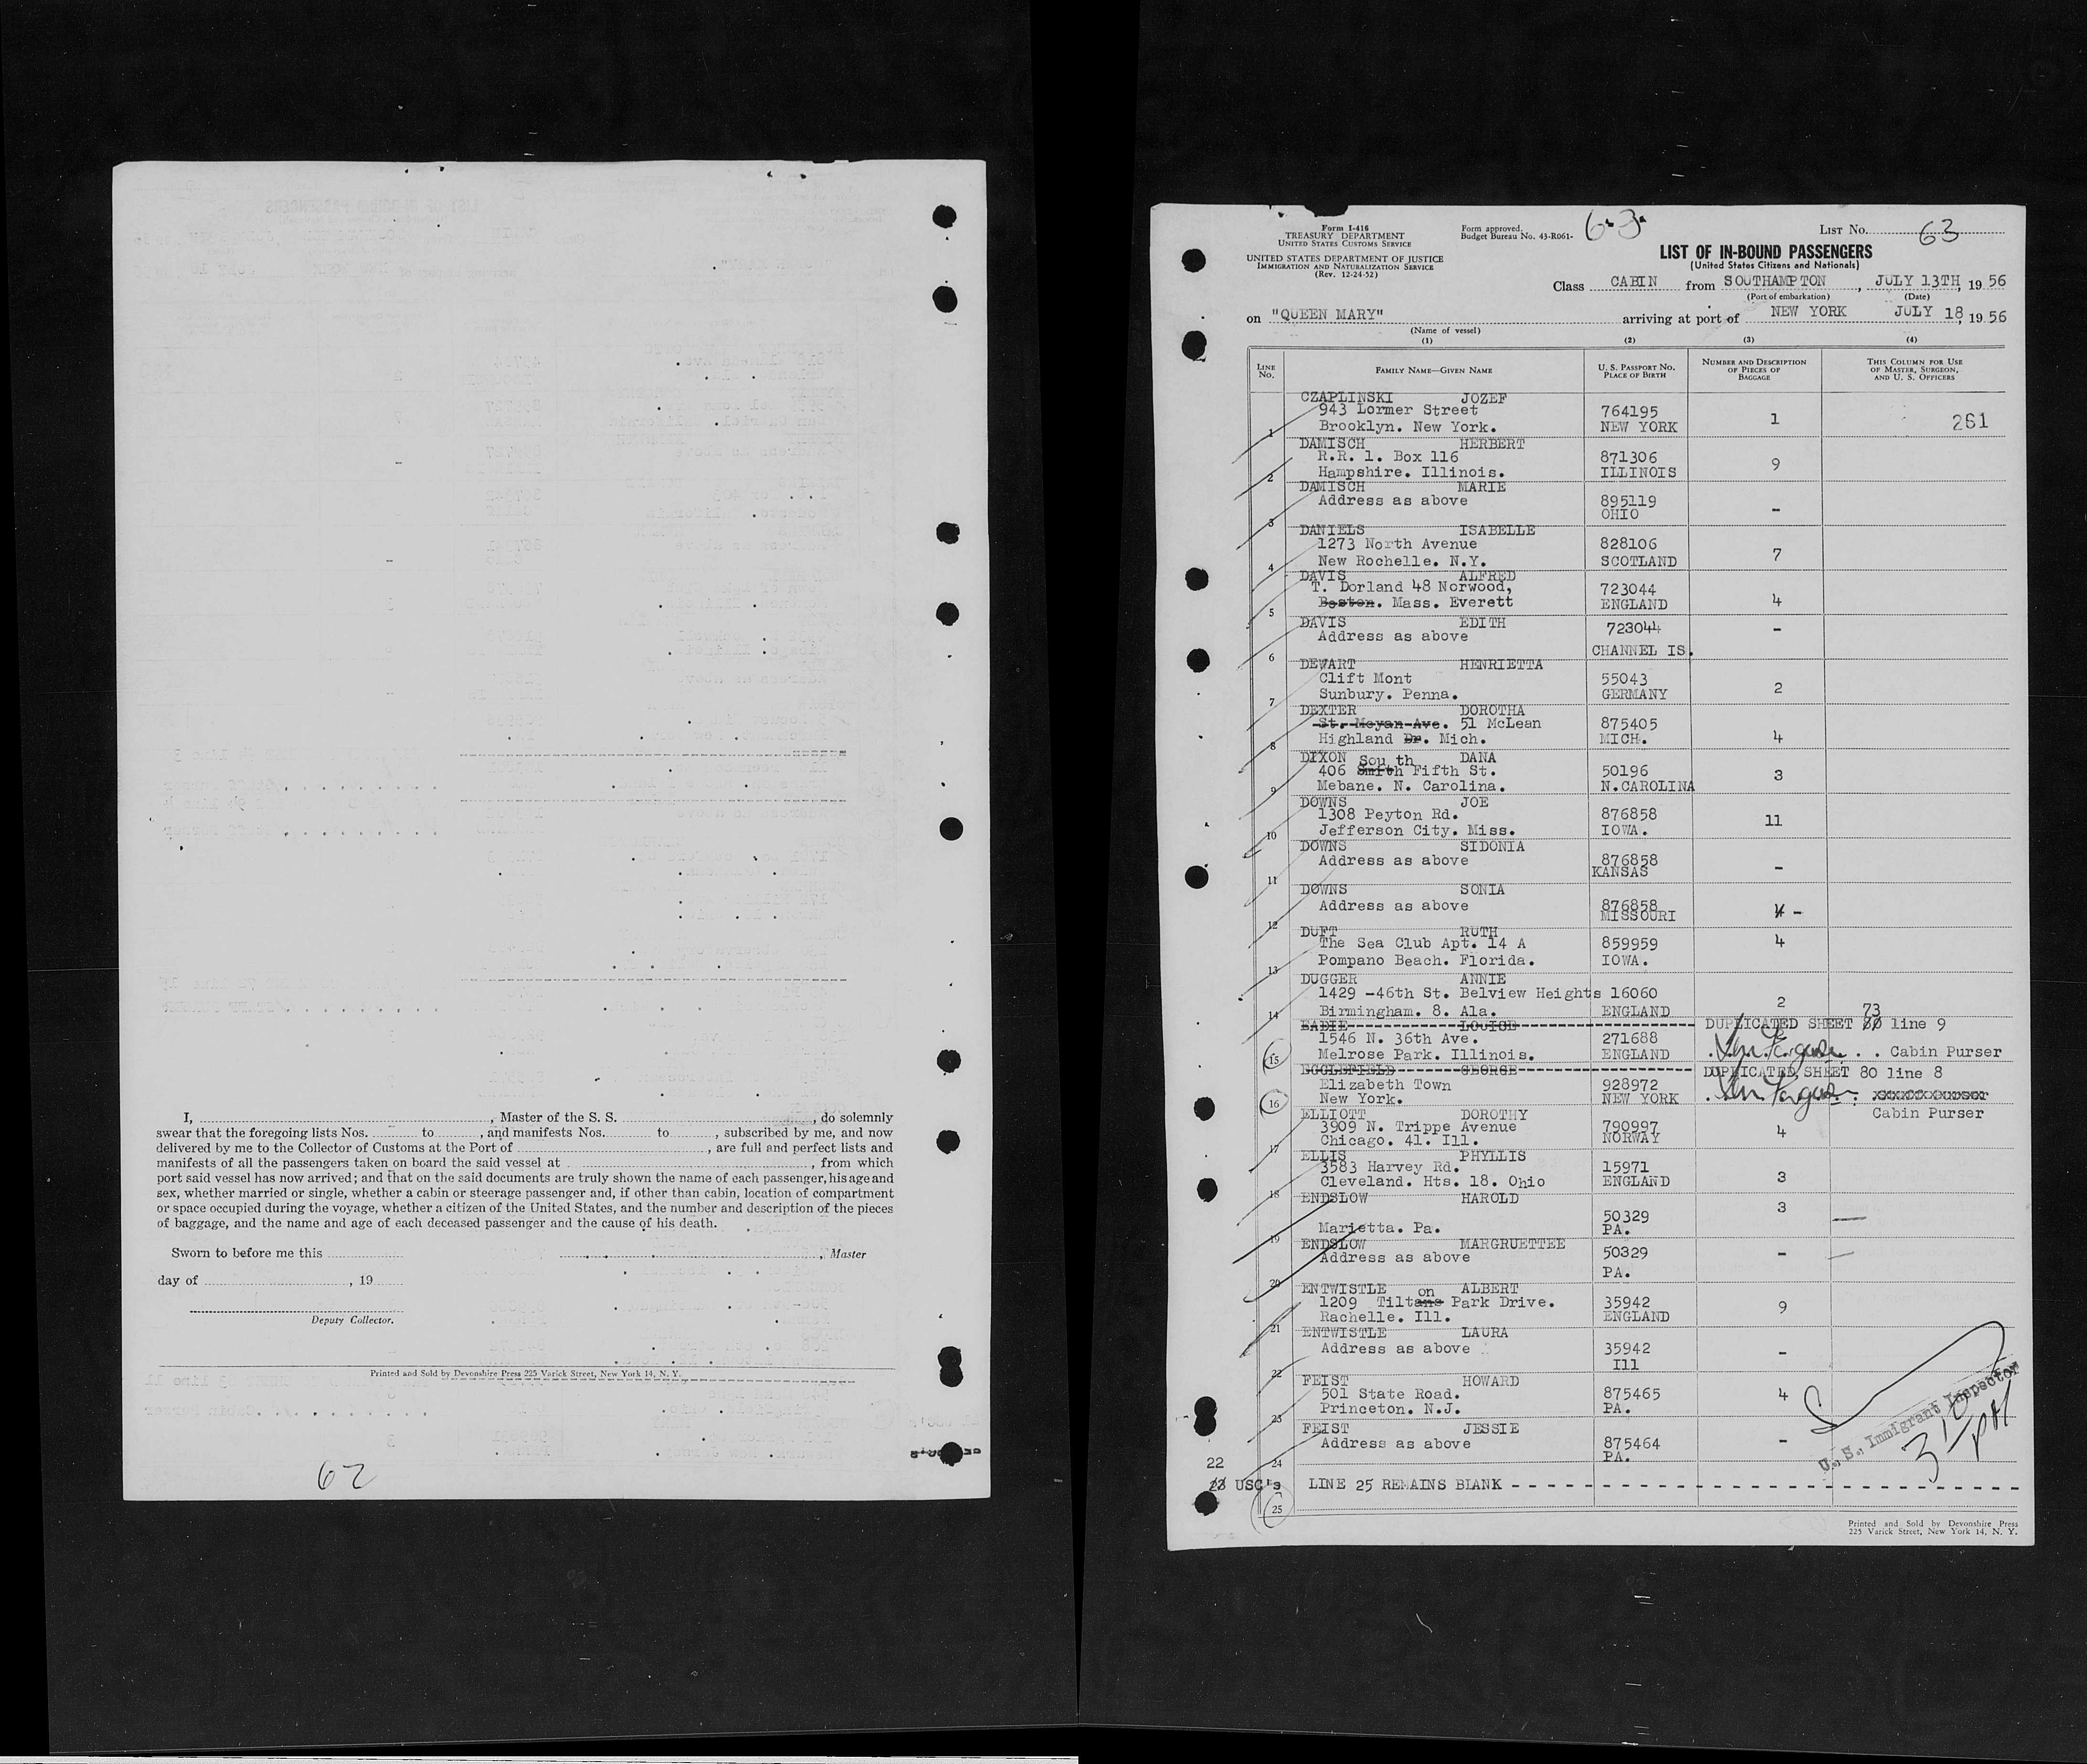 I, , Master of the S. S. , do solemnly
swear that the foregoing lists Nos. to , and manifests Nos. to , subscribed by me, and now
delivered by me to the Collector of Customs at the Port of , are full and perfect lists and
manifests of all the passengers taken on board the said vessel at , from which
port said vessel has now arrived; and that on the said documents are truly shown the name of each passenger, his age and
sex, whether married or single, whether a cabin or steerage passenger and, if other than cabin, location of compartment
or space occupied during the voyage, whether a citizen of the United States, and the number and description of the pieces
of baggage, and the name and age of each deceased passenger and the cause of his death.
Sworn to before me this , Master
day of , 19
Deputy Collector.
Printed and Sold by Devonshire Press 225 Varick Street, New York 14, N. Y.
62
Form I-416
TREASURY DEPARTMENT
UNITED STATES CUSTOMS SERVICE
UNITED STATES DEPARTMENT OF JUSTICE
IMMIGRATION AND NATURALIZATION SERVICE
(Rev. 12-24-52)
Form approved.
Budget Bureau No. 43-R061-
63
LIST No. 63
LIST OF IN-BOUND PASSENGERS
(United States Citizens and Nationals)
Class CABIN from SOUTHAMPTON , JULY 13TH, 19 56
(Port of embarkation) (Date)
on "QUEEN MARY" arriving at port of NEW YORK JULY 18, 19 56
(Name of vessel)
(1) (2) (3) (4)
LINE No. FAMILY NAME—GIVEN NAME U. S. PASSPORT NO. PLACE OF BIRTH NUMBER AND DESCRIPTION OF PIECES OF BAGGAGE THIS COLUMN FOR USE OF MASTER, SURGEON, AND U. S. OFFICERS
CZAPLINSKI JOZEF
943 Lormer Street 764195
1 Brooklyn. New York. NEW YORK 1 261
DAMISCH HERBERT
R.R. 1. Box 116 871306
2 Hampshire. Illinois. ILLINOIS 9
DAMISCH MARIE
Address as above 895119
3 OHIO -
DANIELS ISABELLE
1273 North Avenue 828106
4 New Rochelle. N.Y. SCOTLAND 7
DAVIS ALFRED
T. Dorland 48 Norwood, 723044
5 Boston. Mass. Everett ENGLAND 4
DAVIS EDITH
Address as above 723044 -
6 CHANNEL IS.
DEWART HENRIETTA
Clift Mont 55043
7 Sunbury. Penna. GERMANY 2
DEXTER DOROTHA
St. Moyan Ave. 51 McLean 875405
8 Highland Dr. Mich. MICH. 4
DIXON DANA
South
406 Smith Fifth St. 50196
9 Mebane. N. Carolina. N.CAROLINA 3
DOWNS JOE
1308 Peyton Rd. 876858
10 Jefferson City. Miss. IOWA. 11
DOWNS SIDONIA
Address as above 876858
11 KANSAS -
DOWNS SONIA
Address as above 876858
12 MISSOURI 4 -
DUFT RUTH
The Sea Club Apt. 14 A 859959 4
13 Pompano Beach. Florida. IOWA.
DUGGER ANNIE
1429 -46th St. Belview Heights 16060
14 Birmingham. 8. Ala. ENGLAND 2
73
EADIE LOUISE DUPLICATED SHEET 80 line 9
1546 N. 36th Ave. 271688
15 Melrose Park. Illinois. ENGLAND Cabin Purser
EGGLEFIELD GEORGE DUPLICATED SHEET 80 line 8
Elizabeth Town 928972
16 New York. NEW YORK
Cabin Purser
ELLIOTT DOROTHY
3909 N. Trippe Avenue 790997
17 Chicago. 41. Ill. NORWAY 4
ELLIS PHYLLIS
3583 Harvey Rd. 15971
18 Cleveland. Hts. 18. Ohio ENGLAND 3
ENDSLOW HAROLD 3
50329
19 Marietta. Pa. PA.
ENDSLOW MARGRUETTEE
Address as above 50329 -
20 PA.
ENTWISTLE ALBERT
on
1209 Tiltans Park Drive. 35942
21 Rachelle. Ill. ENGLAND 9
ENTWISTLE LAURA
Address as above 35942 -
22 Ill
FEIST HOWARD
501 State Road. 875465 4
23 Princeton. N.J. PA.
FEIST JESSIE
Address as above 875464 -
24 PA.
22
23 USC's LINE 25 REMAINS BLANK
25
U. S. Immigrant Inspector
Printed and Sold by Devonshire Press
225 Varick Street, New York 14, N. Y.